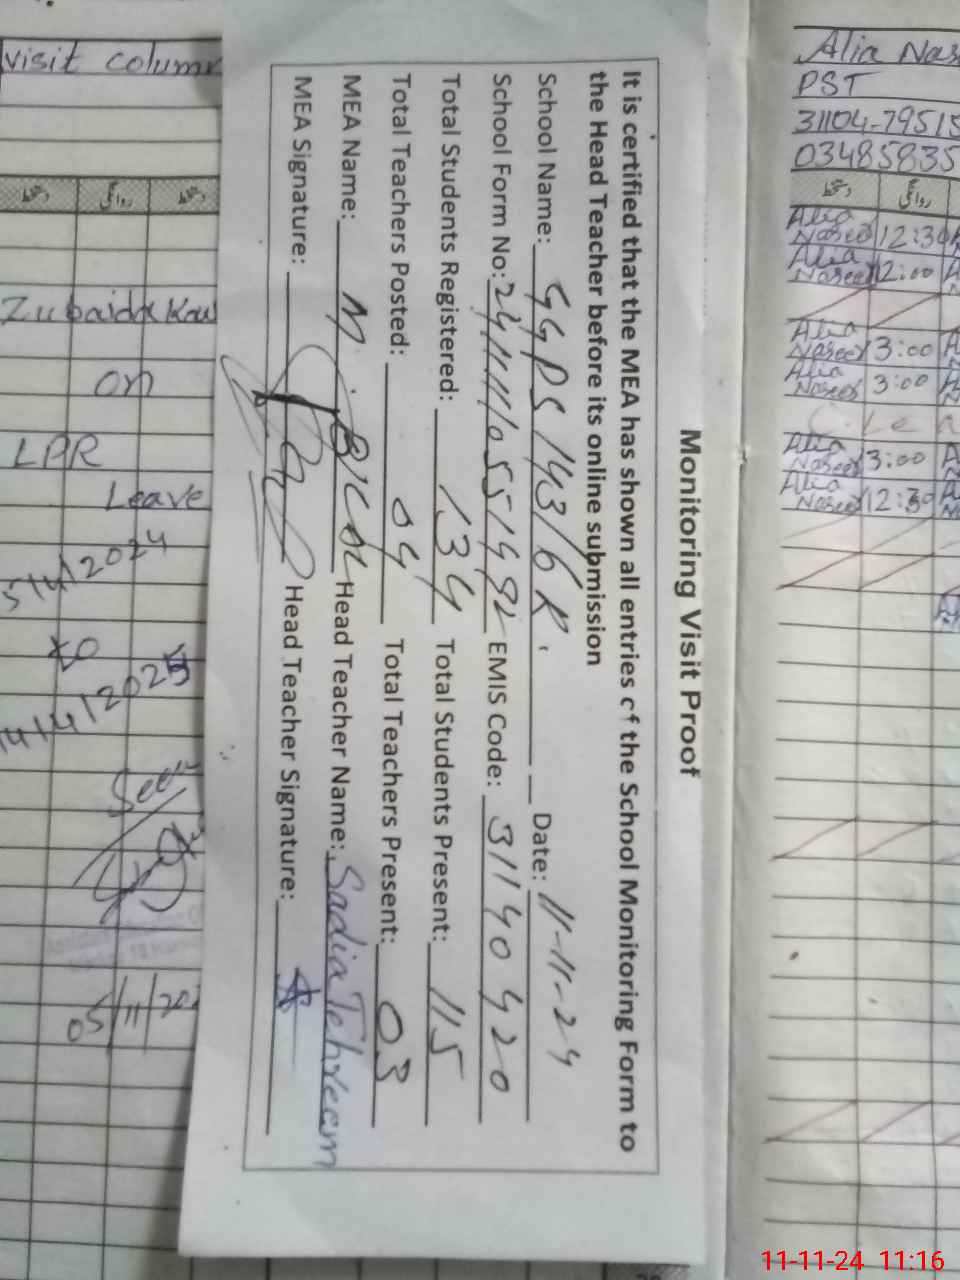 Monitoring Visit Proof
It is certified that the MEA has shown all entries of the School Monitoring Form to
the Head Teacher before its online submission
School Name: GGPS 143/6R. Date: 11-11-24
School Form No: EMIS Code: 31140420
Total Students Registered: 134 Total Students Present: 115
Total Teachers Posted: 04 Total Teachers Present: 03
MEA Name: M. Bilal Head Teacher Name: Sadia Tehreem
MEA Signature: Head Teacher Signature:
visit column
دستخط روانگی دستخط
Zubaida
on
LPR
Leave
to
Seen
Alia
PST
31104-79515
03485835
دستخط روانگی
Alia
Naseer 12:30
Alia
Naseer 2:00
Alia
Naseer 3:00
Alia
Naseer 3:00
Alia
Naseer 3:00
Alia
Naseer 12:30
11-11-24 11:16